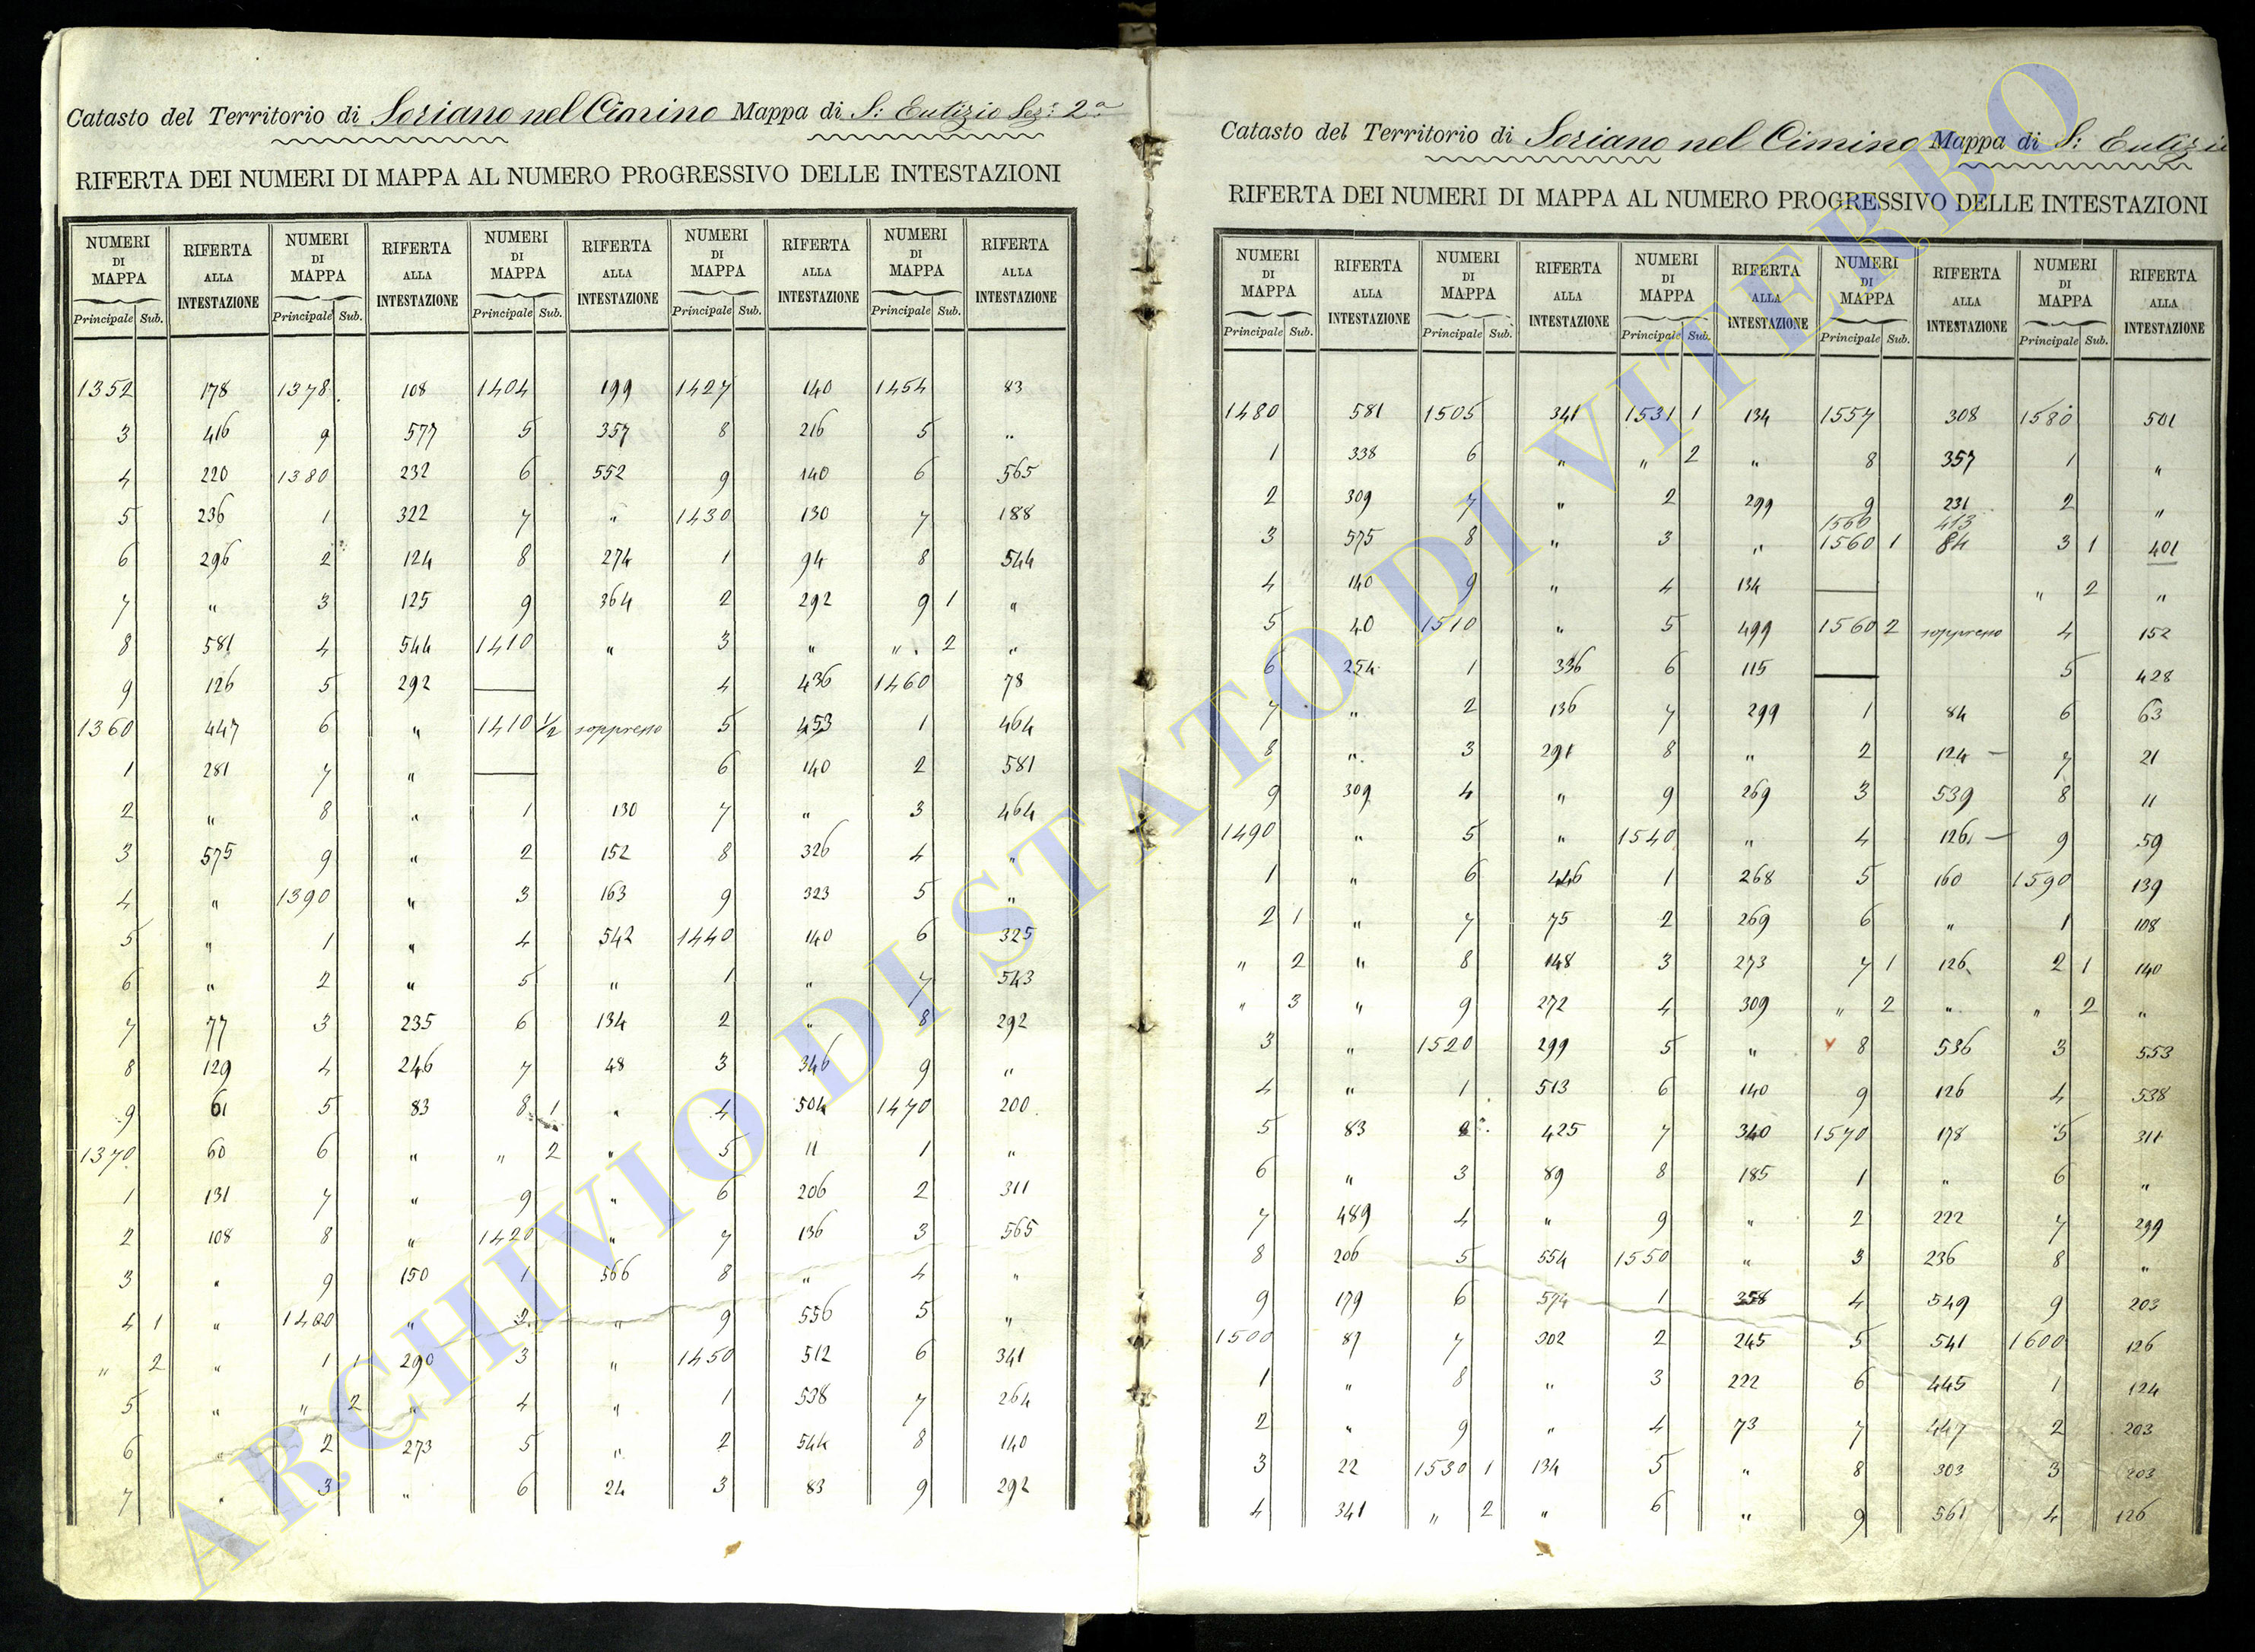 Catasto del Territorio di Soriano nel Cimino Mappa di S: Eutizio Sez: 2a
RIFERTA DEI NUMERI DI MAPPA AL NUMERO PROGRESSIVO DELLE INTESTAZIONI
NUMERI DI MAPPA RIFERTA ALLA INTESTAZIONE NUMERI DI MAPPA RIFERTA ALLA INTESTAZIONE NUMERI DI MAPPA RIFERTA ALLA INTESTAZIONE NUMERI DI MAPPA RIFERTA ALLA INTESTAZIONE NUMERI DI MAPPA RIFERTA ALLA INTESTAZIONE
Principale Sub. Principale Sub. Principale Sub. Principale Sub. Principale Sub.
1352 178 1378 108 1404 199 1427 140 1454 83
3 416 9 577 5 357 8 216 5 "
4 220 1380 232 6 552 9 140 6 565
5 236 1 322 7 " 1430 130 7 188
6 296 2 124 8 274 1 94 8 544
7 " 3 125 9 364 2 292 9 1 "
8 581 4 544 1410 " 3 " " 2 "
9 126 5 292 — 4 436 1460 78
1360 447 6 " 1410 1/2 soppresso 5 453 1 464
1 281 7 " — 6 140 2 581
2 " 8 " 1 130 7 " 3 464
3 575 9 " 2 152 8 326 4 "
4 " 1390 " 3 163 9 323 5 "
5 " 1 " 4 542 1440 140 6 325
6 " 2 " 5 " 1 " 7 543
7 77 3 235 6 134 2 " 8 292
8 129 4 246 7 48 3 346 9 "
9 61 5 83 8 1 " 4 504 1470 200
1370 60 6 " " 2 " 5 11 1 "
1 131 7 " 9 " 6 206 2 311
2 108 8 " 1420 " 7 136 3 565
3 " 9 150 1 566 8 " 4 "
4 1 " 1400 " 2 " 9 556 5 "
" 2 " 1 1 290 3 " 1450 512 6 341
5 " " 2 " 4 " 1 538 7 264
6 " 2 273 5 " 2 544 8 140
7 " 3 " 6 24 3 83 9 292
Catasto del Territorio di Soriano nel Cimino Mappa di S: Eutizio
RIFERTA DEI NUMERI DI MAPPA AL NUMERO PROGRESSIVO DELLE INTESTAZIONI
NUMERI DI MAPPA RIFERTA ALLA INTESTAZIONE NUMERI DI MAPPA RIFERTA ALLA INTESTAZIONE NUMERI DI MAPPA RIFERTA ALLA INTESTAZIONE NUMERI DI MAPPA RIFERTA ALLA INTESTAZIONE NUMERI DI MAPPA RIFERTA ALLA INTESTAZIONE
Principale Sub. Principale Sub. Principale Sub. Principale Sub. Principale Sub.
1480 581 1505 341 1531 1 134 1557 308 1580 501
1 338 6 " " 2 " 8 357 1 "
2 309 7 " 2 299 9 231 2 "
1560 413
3 575 8 " 3 " 1560 1 84 3 1 401
4 140 9 " 4 134 — " 2 "
5 40 1510 " 5 499 1560 2 soppresso 4 152
6 254 1 336 6 115 — 5 428
7 " 2 136 7 299 1 84 6 63
8 " 3 291 8 " 2 124 — 7 21
9 309 4 " 9 269 3 539 8 11
1490 " 5 " 1540 " 4 126 — 9 59
1 " 6 446 1 268 5 160 1590 139
2 1 " 7 75 2 269 6 " 1 108
" 2 " 8 148 3 273 7 1 126 2 1 140
" 3 " 9 272 4 309 " 2 " " 2 "
3 " 1520 299 5 " 8 536 3 553
4 " 1 513 6 140 9 126 4 538
5 83 2 425 7 340 1570 178 5 311
6 " 3 89 8 185 1 " 6 "
7 489 4 " 9 " 2 222 7 299
8 206 5 554 1550 " 3 236 8 "
9 179 6 574 1 358 4 549 9 203
1500 87 7 302 2 245 5 541 1600 126
1 " 8 " 3 222 6 445 1 124
2 " 9 " 4 73 7 447 2 203
3 22 1530 1 134 5 " 8 303 3 203
4 341 " 2 " 6 " 9 561 4 126
ARCHIVIO DI STATO DI VITERBO